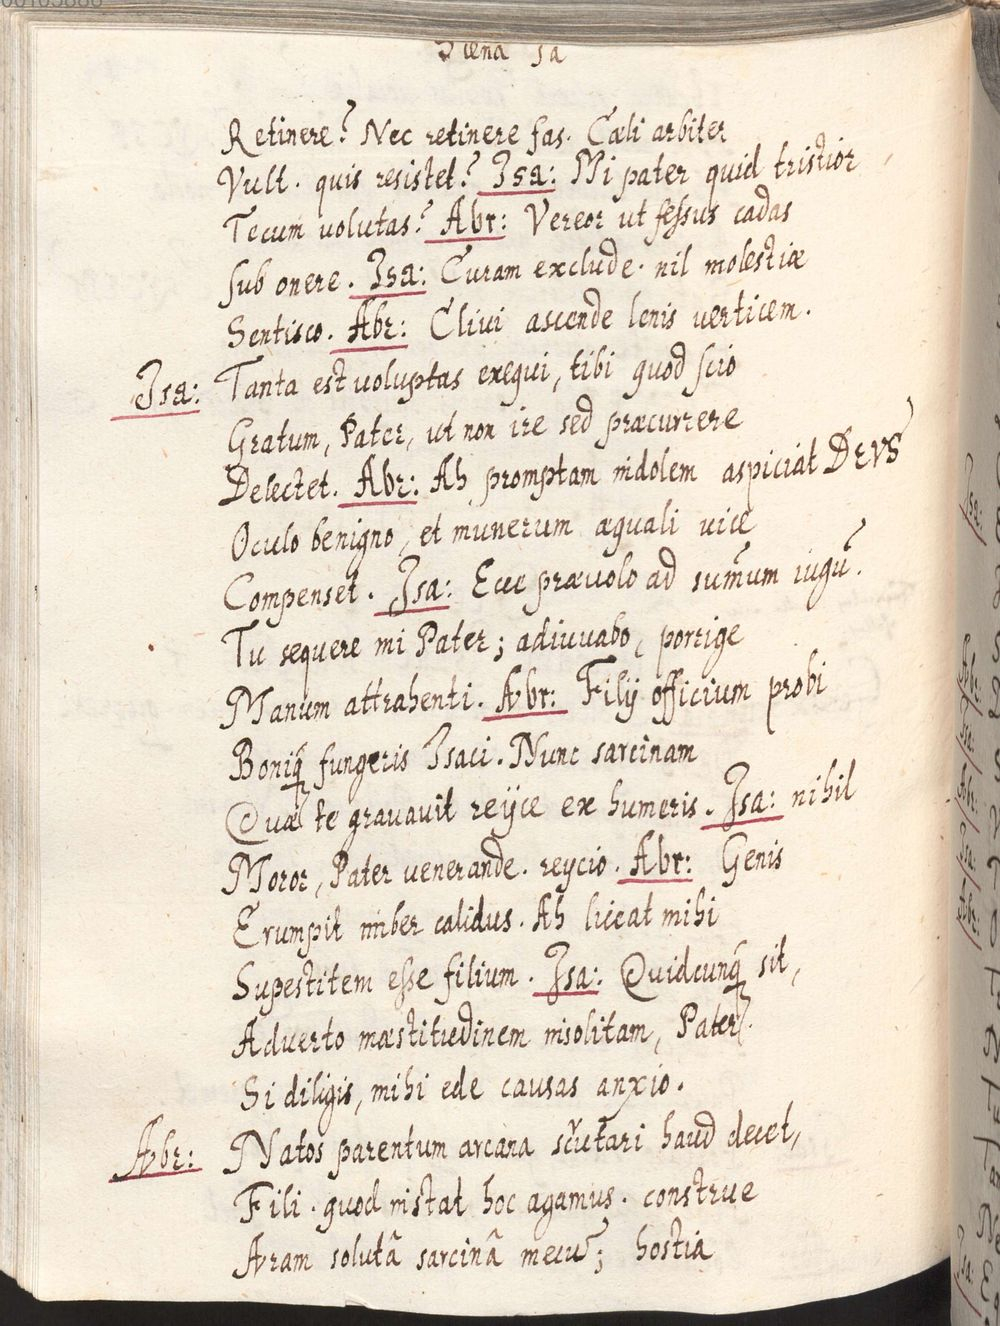 Scena 5a
Retinere? Nec retinere fas. Cœli arbiter
Vult. quis resistet? Isa: Mi pater quid tristior
Tecum volutas? Abr: Vereor ut fessus cadas
Sub onere. Isa: Curam exclude. nil molestiæ
Sentisco. Abr: Clivi ascende lenis verticem.
Isa: Tanta est voluptas exequi, tibi quod scio
Gratum, Pater, ut non ire sed præcurrere
Delectet. Abr: Ah promptam indolem aspiciat DEVS
Oculo benigno, et munerum æquali vice
Compenset. Isa: Ecce prævolo ad sum̃um iugũ.
Tu sequere mi Pater; adiuvabo, porrige
Manum attrahenti. Abr: Filij officium probi
Boniq̃ fungeris Isaci. Nunc sarcinam
Quæ te gravavit reijce ex humeris. Isa: nihil
Moror, Pater venerande. reijcio. Abr: Genis
Erumpit imber calidus. Ah liceat mihi
Supestitem esse filium. Isa: Quidcunq̃ sit,
Adverto mæstitudinem insolitam, Pater.
Si diligis, mihi ede causas anxio.
Abr: Natos parentum arcana scrutari haud decet,
Fili. quod instat hoc agamus. construe
Aram solutã sarcinã mecũ; hostia